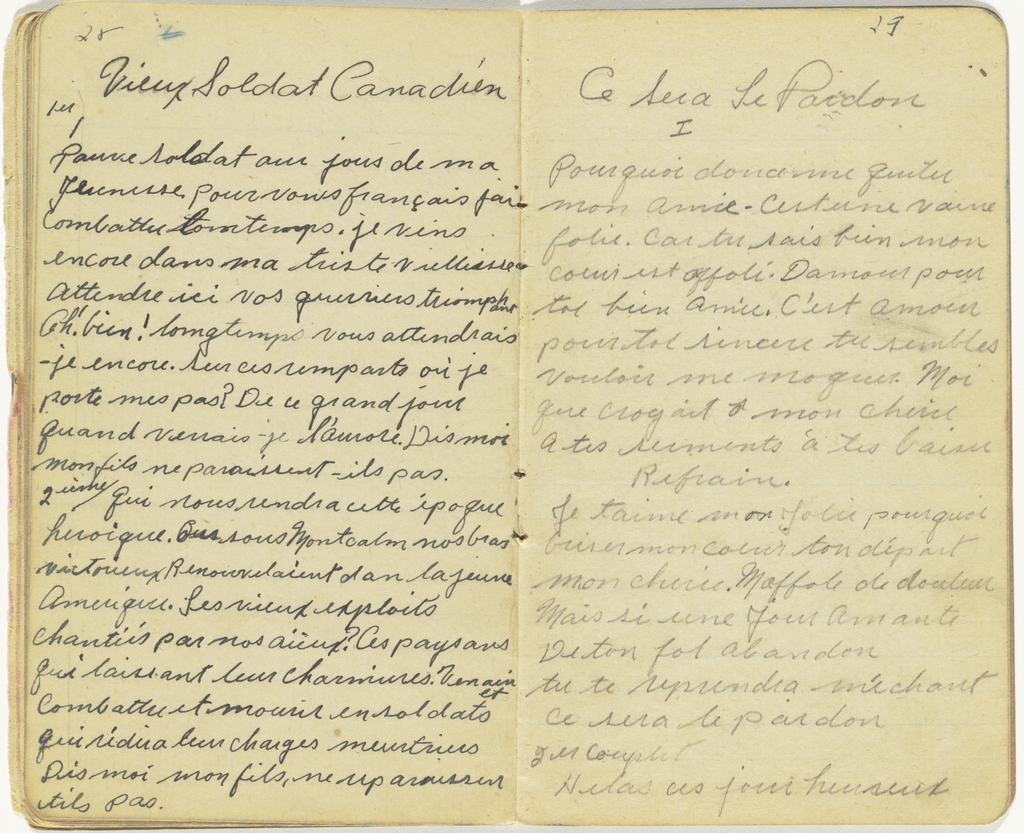 28
Vieux Soldat Canadien
1er
1
Pauvre soldat aux jours de ma
Jeunesse pour vous français j'ai
Combattu lomtemps. je viens
encore dans ma triste viellisse
Attendre ici vos guerriers triomphant
Oh! bien! lomgtemps vous attendrais
-je encore. sur ces remparts où je
porte mes pas? De ce grand jour
quand verrais-je l'aurore. Dis moi
mon fils ne paraissent-ils pas.
2ième Qui nous rendra cette époque
heroique. sous Montcalm nos bras
victorieux Renouvelaient dan la jeune
Amerique. Ses vieux exploits
chantiés par nos aiëux? Ces paysans
qui laissant leur charmires. Venain
et
Combattre et mourir en soldats
qui rédira leur charges meurtriers
Dis moi mon fils, ne reparaissen
t-ils pas.
29
Ce sera Le Pardon
I
Pourquoi donc me quittes
mon amie. C'est une vaine
folie. Car tu sais bien mon
coeur est affoli. Damour pour
toi bien Amie. C'est amour
pour toi sincere tu sembles
vouloir me moquer. Moi
que croyait à mon chérie
A tes serments à tes baiser
Refrain.
Je taime mon Jolie pourquoi
briser mon coeur ton départ
mon cherie. M'affole de douleur
Mais si une Jour Amante
De ton fol abandon
tu te reprendra méchant
Ce sera le pardon
2er Couplet
Helas ces jour heureux